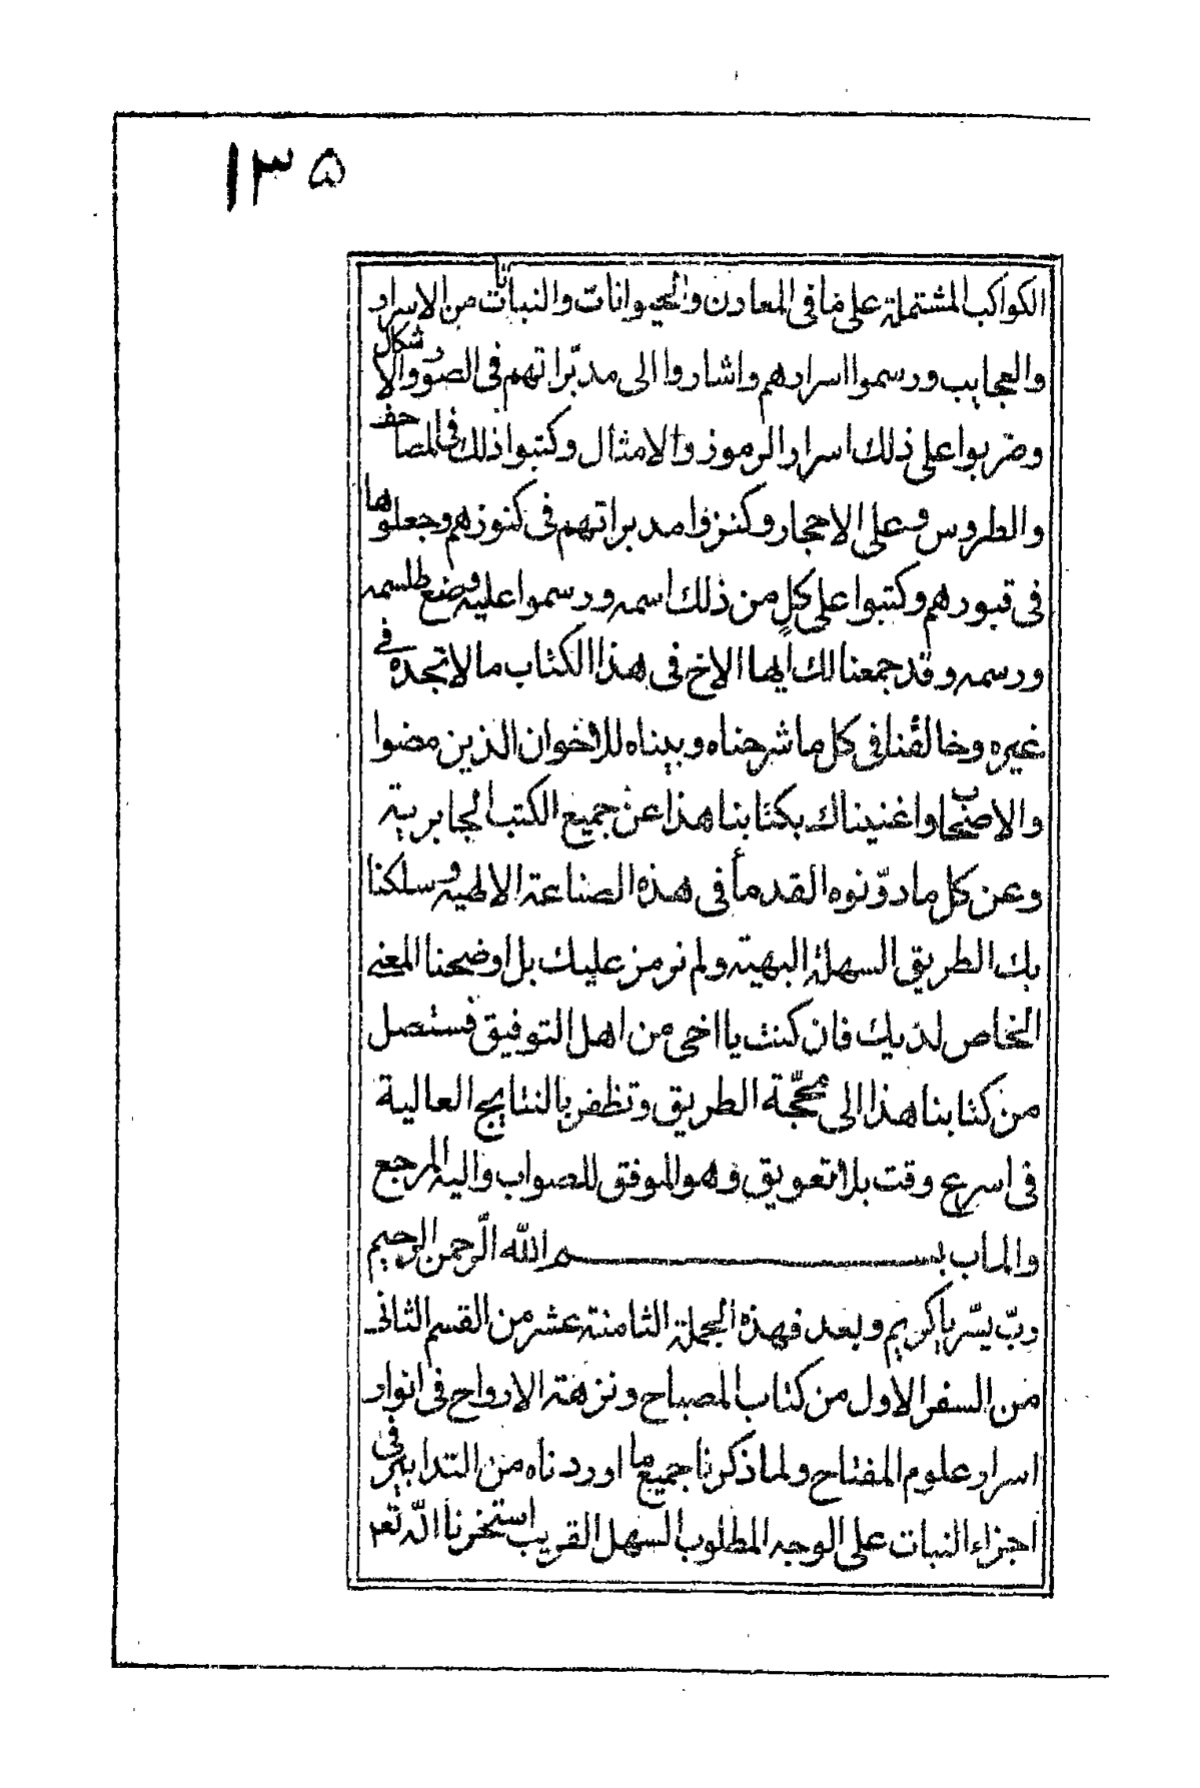 ١٣٥
الكواكب المشتملة على ما فى المعادن والحيوانات والنباتات من الاسرار
والعجايب ورسموا اسرارهم واشاروا الى مدبّراتهم فى الصور والاشكال
وضربوا على ذلك اسرار الرموز والامثال وكتبوا ذلك فى المصاحف
والطروس وعلى الاحجار وكنزوا مدبراتهم فى كنوزهم وجعلوها
فى قبورهم وكتبوا على كلٍ من ذلك اسمه ورسموا عليه وضع طلسمه
ورسمه وقد جمعنا لك ايها الاخ فى هذا الكتاب ما لا تجده فى
غيره وخالفنا فى كل ما شرحناه وبيناه للاخوان الذين مضوا
والاصحاب واغنيناك بكتابنا هذا عن جميع الكتب الجابرية
وعن كل ما دوّنوه القدمأ فى هذه الصناعة الالهية وسلكنا
بك الطريق السهلة البهية ولم نرمز عليك بل اوضحنا المعنى
الخاص لديك فان كنت يا اخى من اهل التوفيق فستصل
من كتابنا هذا الى محجّة الطريق وتظفر بالنتايج العالية
فى اسرع وقت بلا تعويق وهو الموفق للصواب واليه المرجع
والماب بسم الله الرّحمن الرحيم
ربّ يسّر ياكريم وبعد فهذه الجملة الثامنة عشر من القسم الثانى
من السفر الاول من كتاب المصباح ونزهة الارواح فى انوار
اسرار علوم المفتاح ولما ذكرنا جميع ما اوردناه من التدابير فى
اجزاء النبات على الوجه المطلوب السهل القريب استخرنا اللّه تعم